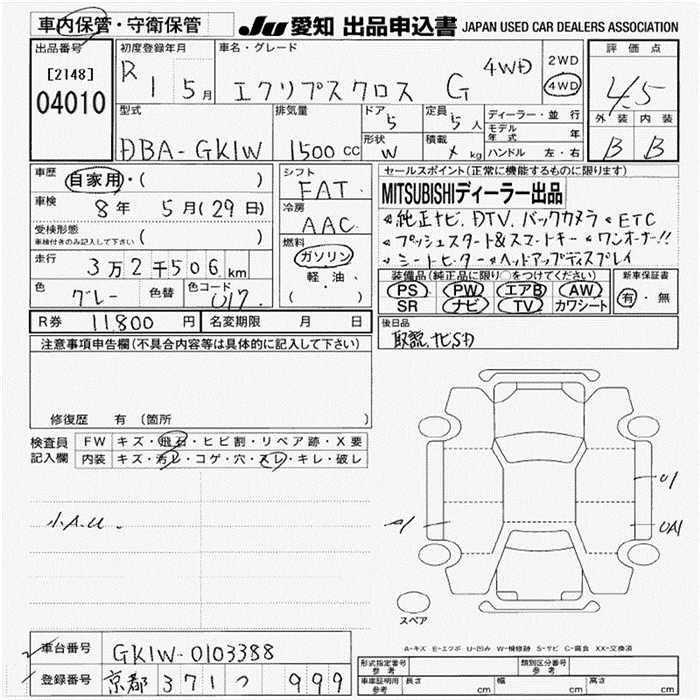 車内保管・守衛保管
JU 愛知 出品申込書 JAPAN USED CAR DEALERS ASSOCIATION
出品番号
[2148]
04010
初度登録年月
R 1 5月
車名・グレード
エクリプスクロス G 4WD
2WD
4WD
評価点
4.5
外装 内装
B B
型式
DBA-GK1W
排気量
1500 CC
ドア
5
定員
5人
形状
W
積載
kg
ディーラー・並行
モデル年式 年
ハンドル 左・右
車歴
自家用・( )
車検
8年 5月(29日)
受検形態
車検付きのみ記入して下さい ( )
走行
3万2千506km
色
グレー 色替
色コード
U17
シフト
FAT
冷房
AAC
燃料
ガソリン
軽・油、
( )
セールスポイント(正常に機能するものに限ります)
MITSUBISHIディーラー出品
純正ナビ、DTV、バックカメラ ETC
プッシュスタート&スマートキー ワンオーナー!!
シートヒーター ヘッドアップディスプレイ
装備品(純正品に限り○をつけてください)
PS PW エアB AW
SR ナビ TV カワシート
新車保証書
有・無
R券 11,800円 名変期限 月 日
後日品
取説、ナビSD
注意事項申告欄(不具合内容等は具体的に記入して下さい)
修復歴 有(箇所 )
検査員記入欄
FW キズ・飛石・ヒビ割・リペア跡・X要
内装 キズ・汚レ・コゲ・穴・スレ・キレ・破レ
小A.U.
A1
U1
UA1
スペア
A-キズ E-エクボ U-凹み W-補修跡 S-サビ C-腐食 XX-交換済
車台番号 GK1W-0103388
登録番号 京都 371 つ 999
型式指定番号 参考
類別区分番号 参考
車車証明用 参考 長さ cm 幅 cm 高さ cm